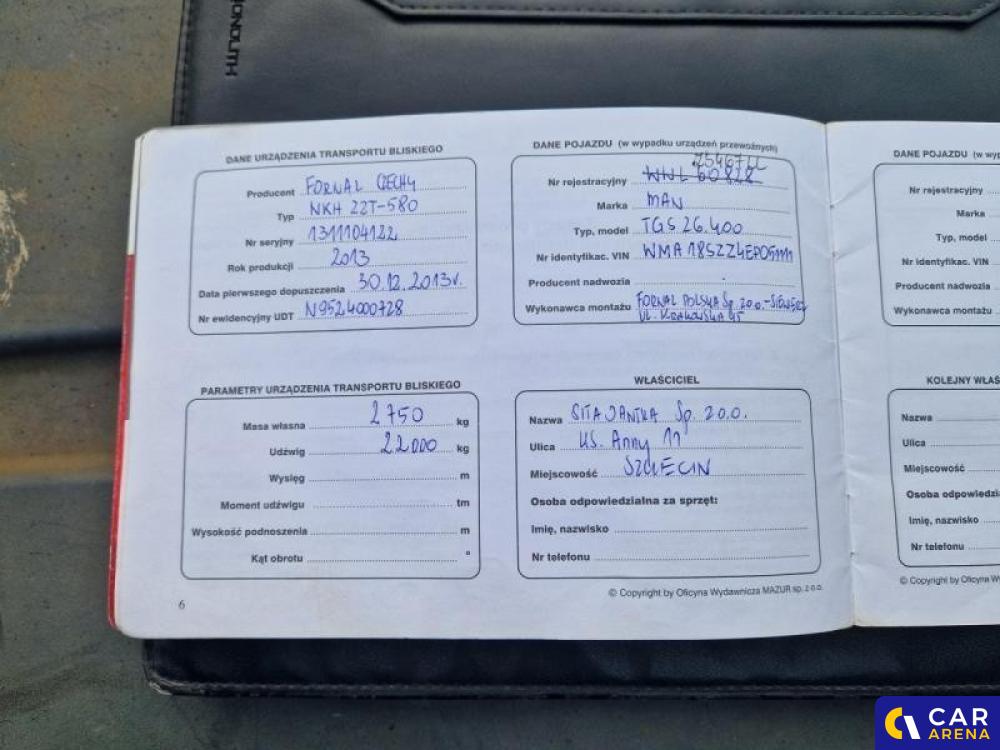 MONOLITH
DANE URZĄDZENIA TRANSPORTU BLISKIEGO
Producent FORNAL CZECHY
Typ NKH 22T-580
Nr seryjny 1311104122
Rok produkcji 2013
Data pierwszego dopuszczenia 30.12.2013r.
Nr ewidencyjny UDT N9524000728
DANE POJAZDU (w wypadku urządzeń przewoźnych)
Nr rejestracyjny WWL 60828
Marka MAN
Typ, model TGS 26.400
Nr identyfikac. VIN
Producent nadwozia
Wykonawca montażu FORNAL POLSKA Sp. z o.o.
Ul. Krakowska 45
PARAMETRY URZĄDZENIA TRANSPORTU BLISKIEGO
Masa własna 2750 kg
Udźwig 22000 kg
Wysięg m
Moment udźwigu tm
Wysokość podnoszenia m
Kąt obrotu °
WŁAŚCICIEL
Nazwa SITA JANTRA Sp. z o.o.
Ulica Ks. Anny 11
Miejscowość SZCZECIN
Osoba odpowiedzialna za sprzęt:
Imię, nazwisko
Nr telefonu
© Copyright by Oficyna Wydawnicza MAZUR sp. z o.o.
6
DANE POJAZDU (w wyp
Nr rejestracyjny
Marka
Typ, model
Nr identyfikac. VIN
Producent nadwozia
Wykonawca montażu
KOLEJNY WŁAŚ
Nazwa
Ulica
Miejscowość
Osoba odpowiedzia
Imię, nazwisko
Nr telefonu
© Copyright by Oficyna Wy
CAR
ARENA